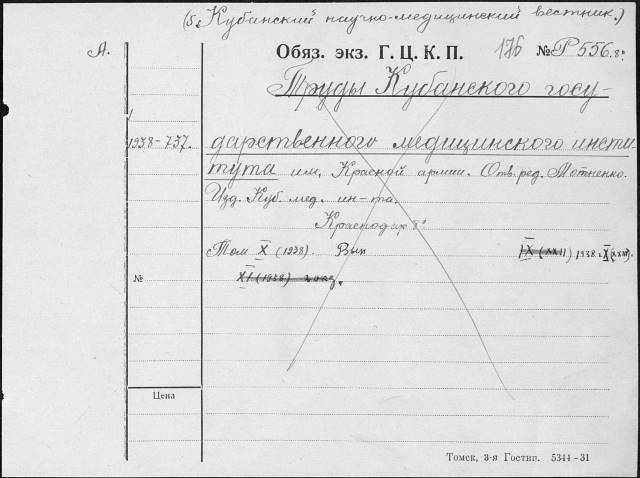 (s. Кубанский научно-медицинский вестник.)
А.
Обяз. экз. Г. Ц. К. П. 176 № Р 556.8°
Труды Кубанского госу-
1938-737. дарственного медицинского инсти-
тута им. Красной армии. Отв. ред. Мотненко.
Изд. Куб. мед. ин-та.
Краснодар 8°
Том X (1938). Вып IX (XXII) 1938. X (XXIII).
№ XI (1938)
Цена
Томск, 3-я Гостип. 5344-31